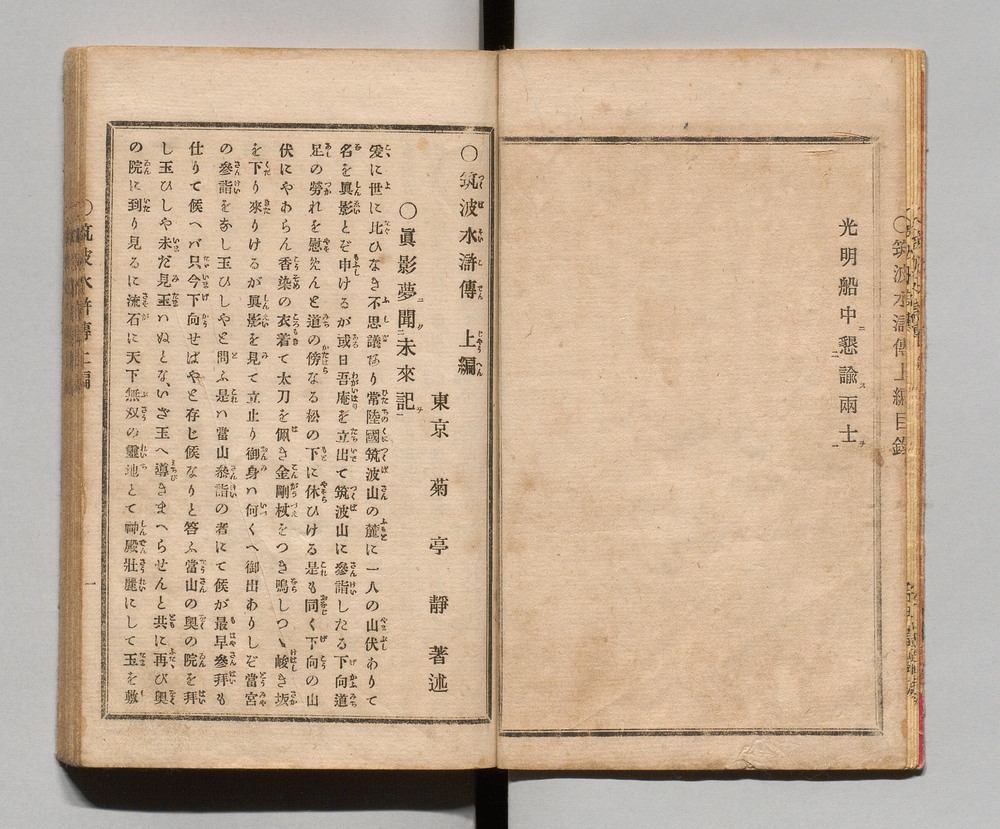 〇筑波水滸傳上編目錄
光明船中懇諭兩士
〇筑波水滸傳　上編
東京　菊亭靜　著述
〇眞影夢聞未來記
爰に世に比ひなき不思議あり常陸國筑波山の麓に一人の山伏ありて
名を眞影とぞ申けるが或日吾庵を立出て筑波山に參詣したる下向道
足の勞れを慰めんと道の傍なる松の下に休ひける是も同く下向の山
伏にやあらん香染の衣着て太刀を佩き金剛杖をつき鳴しつゝ峻き坂
を下り來りけるが眞影を見て立止り御身ハ何くへ御出ありしぞ當宮
の參詣をなし玉ひしやと問ふ是ハ當山參詣の者にて候が最早參拜も
仕りて候へバ只今下向せばやと存じ候なりと答ふ當山の奧の院を拜
し玉ひしや未だ見玉ハぬとな、いざ玉へ導きまヘらせんと共に再び奧
の院に到り見るに流石に天下無双の靈地とて神殿壯麗にして玉を敷
〇筑波水滸傳上編
一